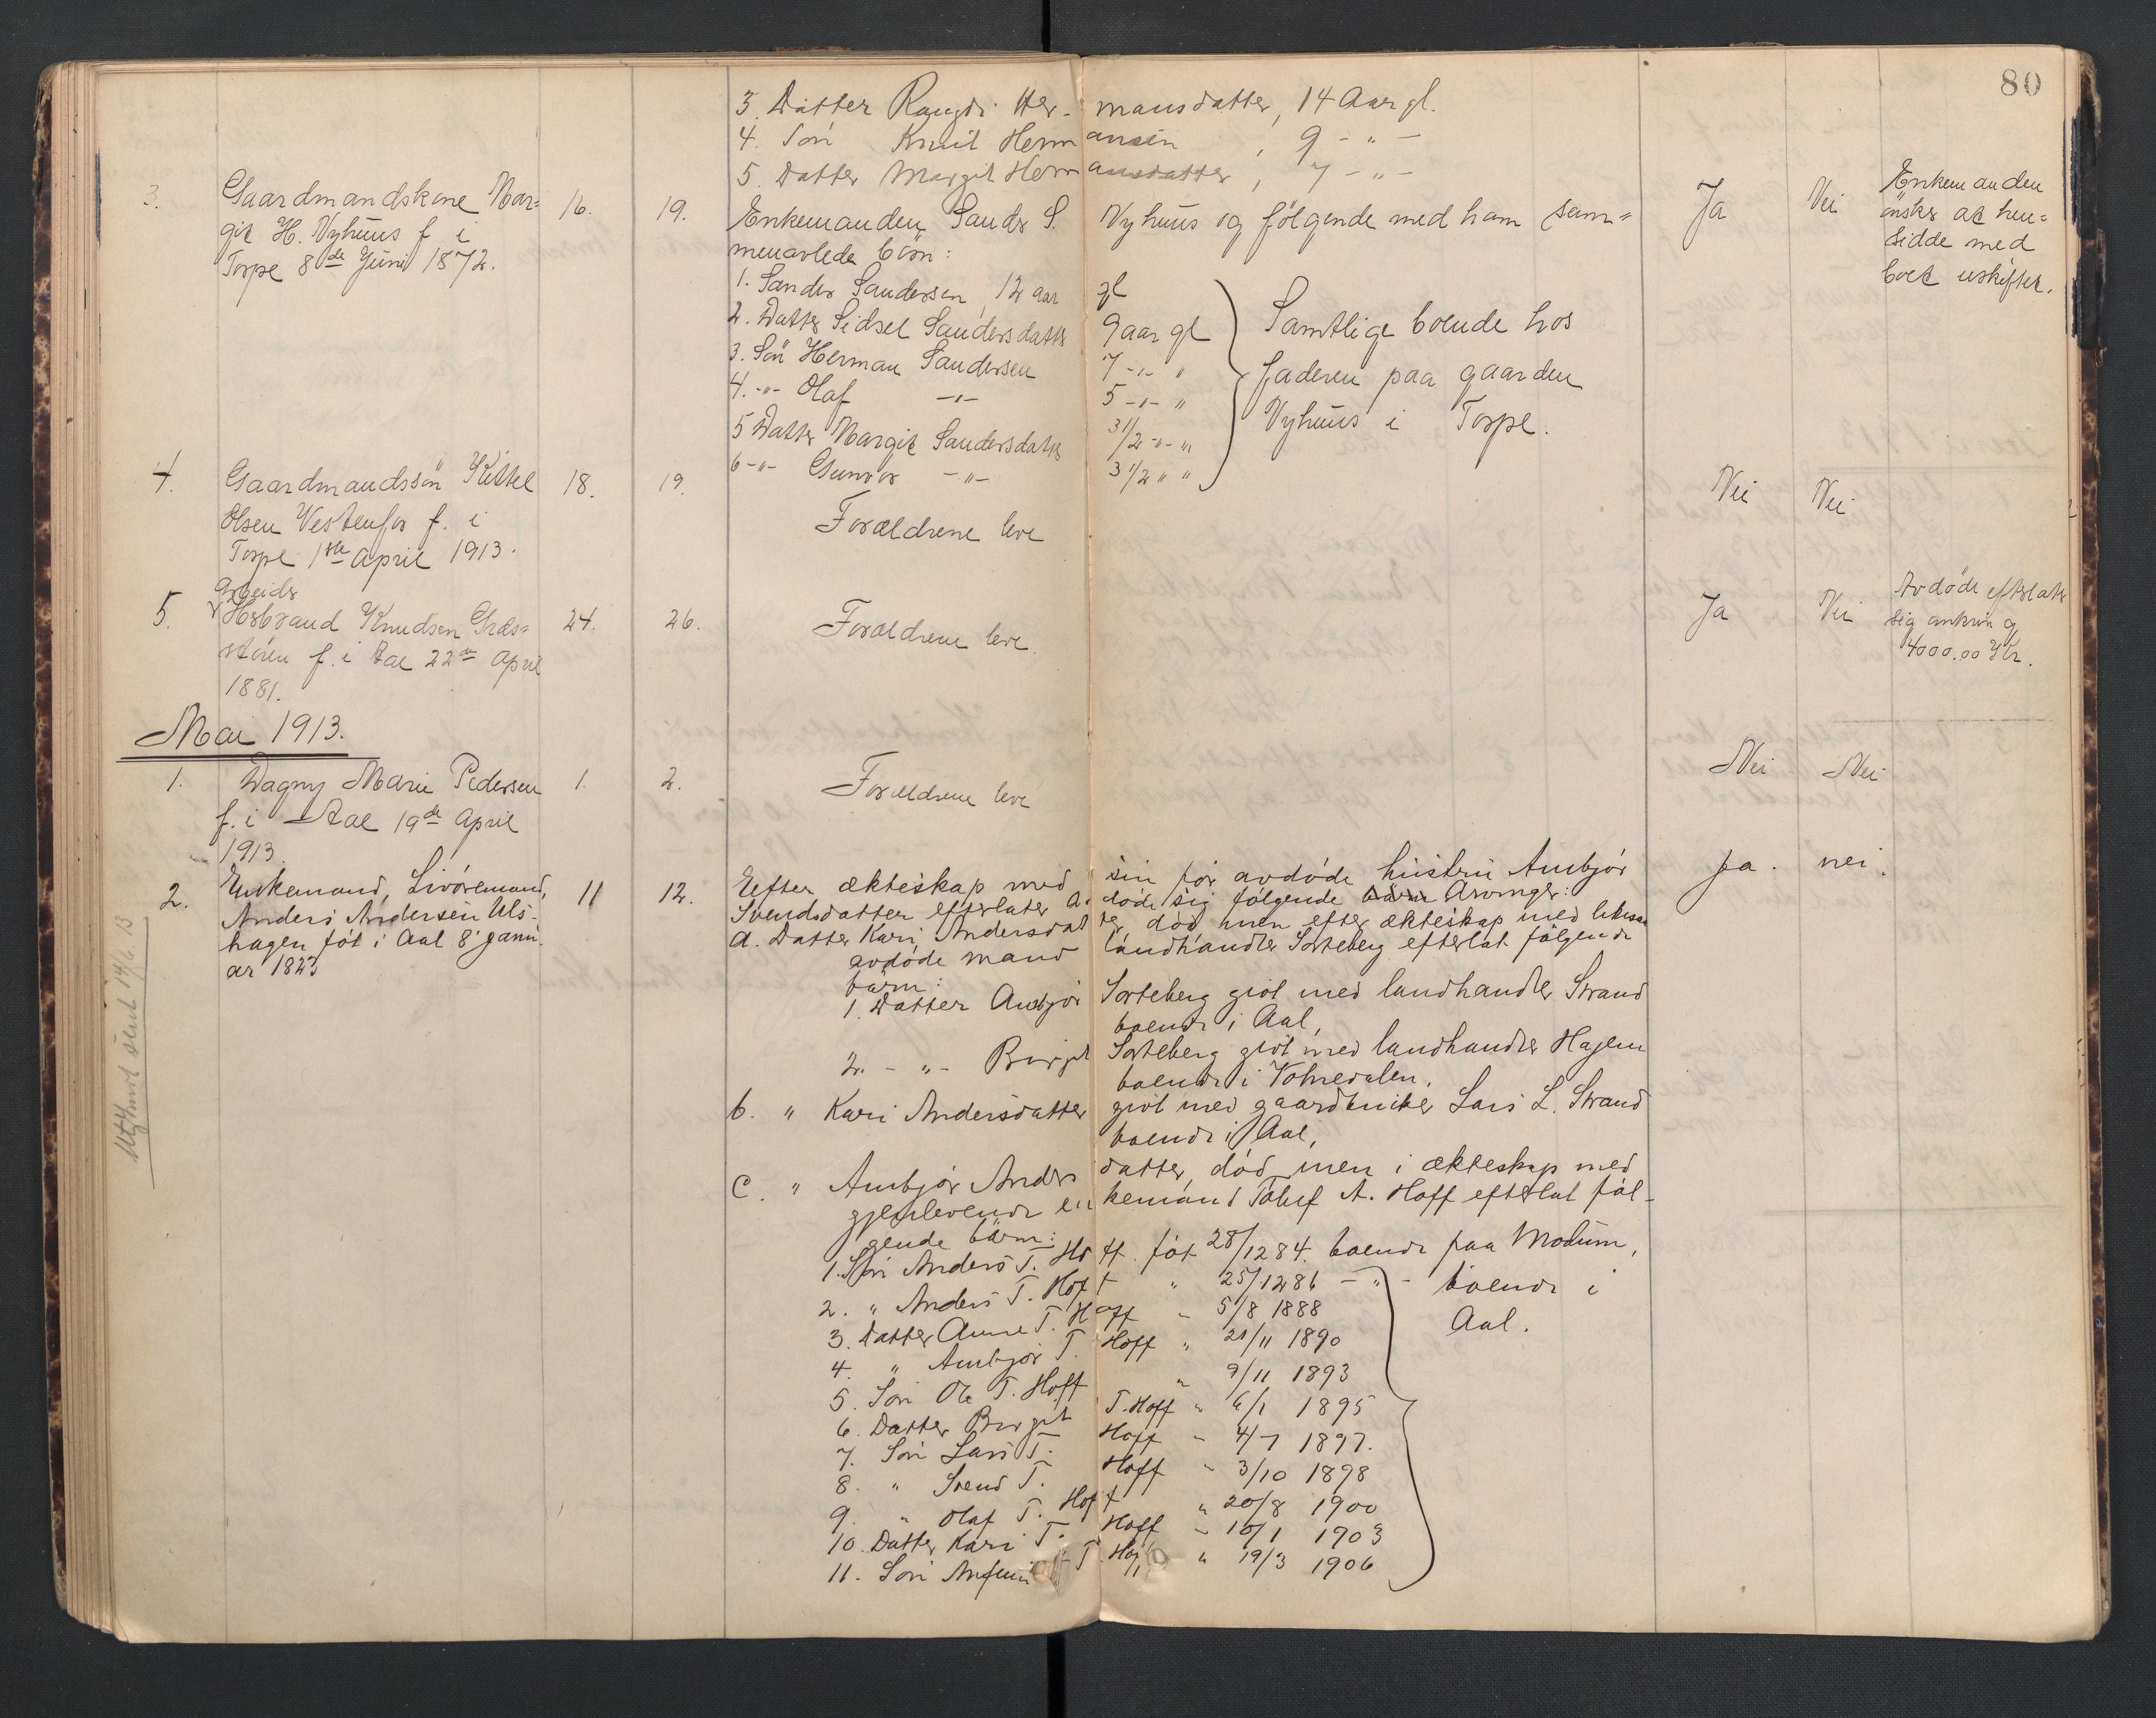 80
3. Datter Rangdi Hermansdatter, 14 Aar gl.
4. Søn Knut Hermansen, 9 - " -
5. Datter Margit Hermansdatter, 7 - " -
3.
Gaardmandskone Mar=
git H. Nyhuus f. i
Torpe 8de Juni 1872.
16.
19.
Enkemanden Sander S. Nyhuus og følgende med ham sam=
menavlede børn:
1. Sander Sandersen, 12 aar gl
2. Datter Sidsel Sandersdatter 9 aar gl
3. Søn Herman Sandersen 7 -"- "
4. -"- Olaf -"- 5 -"- "
5 Datter Margit Sandersdatter 3 1/2 -"- "
6 -"- Gunvor -"- 3 1/2 " "
Samtlige boende hos
faderen paa gaarden
Nyhuus i Torpe.
Ja
Nei
Enkemanden
ønsker at hen=
sidde med
boet uskiftet.
4.
Gaardmandssøn Kittel
Olsen Vestenfor f. i
Torpe 1ste April 1913.
18.
19.
Forældrene leve
Nei
Nei
5.
Arbeider
Herbrand Knudsen Græs=
støren f. i Aal 22de April
1881.
24.
26.
Forældrene leve.
Ja
Nei
Avdøde efterlater
sig omkring
4000.00 Kr.
Mai 1913.
1.
Dagny Marie Pedersen
f. i Aal 19de April
1913.
1.
2.
Forældrene leve
Nei
Nei
2.
Enkemand, Livøremand,
Anders Andersen Uls-
hagen føt i Aal 8' janu-
ar 1823
11
12.
Efter ækteskap med sin før avdøde hustru Ambjør
Svendsdatter efterlater a. døde sig følgende børn Arvinger:
a. Datter Kari Andersdatter, død men efter ækteskap med likesaa
avdøde mand landhandler Sorteberg efterlat følgende
børn:
1. Datter Ambjør Sorteberg givt med landhandler Strand
boende i Aal,
2. - " - Birgit Sorteberg givt med landhandler Hagen
boende i
b. " Kari Andersdatter givt med gaardbruker Lars L. Strand
boende i Aal,
c. " Ambjør Andersdatter, død men i ækteskap med
gjenlevende enkemand Tolleif A. Hoff efterlat føl-
gende børn:
1. Søn Anders T. Hoff. føt 28/12 84. boende paa Modum,
2. " Anders T. Hoff " 25/12 86 - " -
3. Datter Anne T. Hoff " 5/8 1888
4. " Ambjør T. Hoff " 21/11 1890
5. Søn Ole T. Hoff " 9/11 1893
6. Datter Birgit T. Hoff " 6/1 1895
7. Søn Lars T. Hoff " 4/7 1897.
8. " Svend T. Hoff " 3/10 1898
9. " Olaf T. Hoff " 20/8 1900
10. Datter Kari T. Hoff " 10/1 1903
11. Søn T. Hoff " 19/3 1906
boende i
Aal.
Ja.
nei.
sent 14/6 13